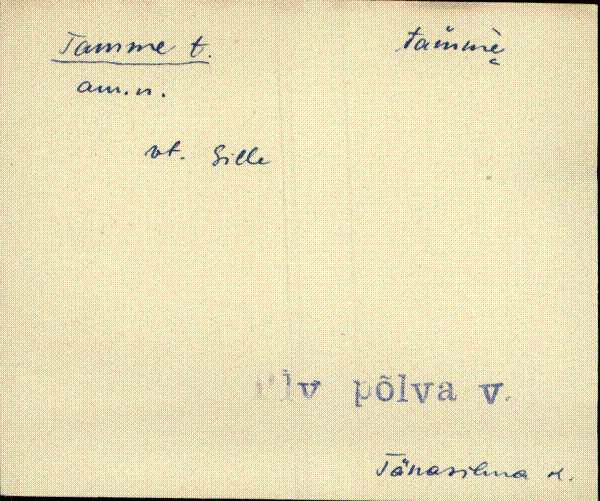 Tamme t.
tämmè
am.n.
vt. Sille
Plv põlva v.
Tänasilma k.